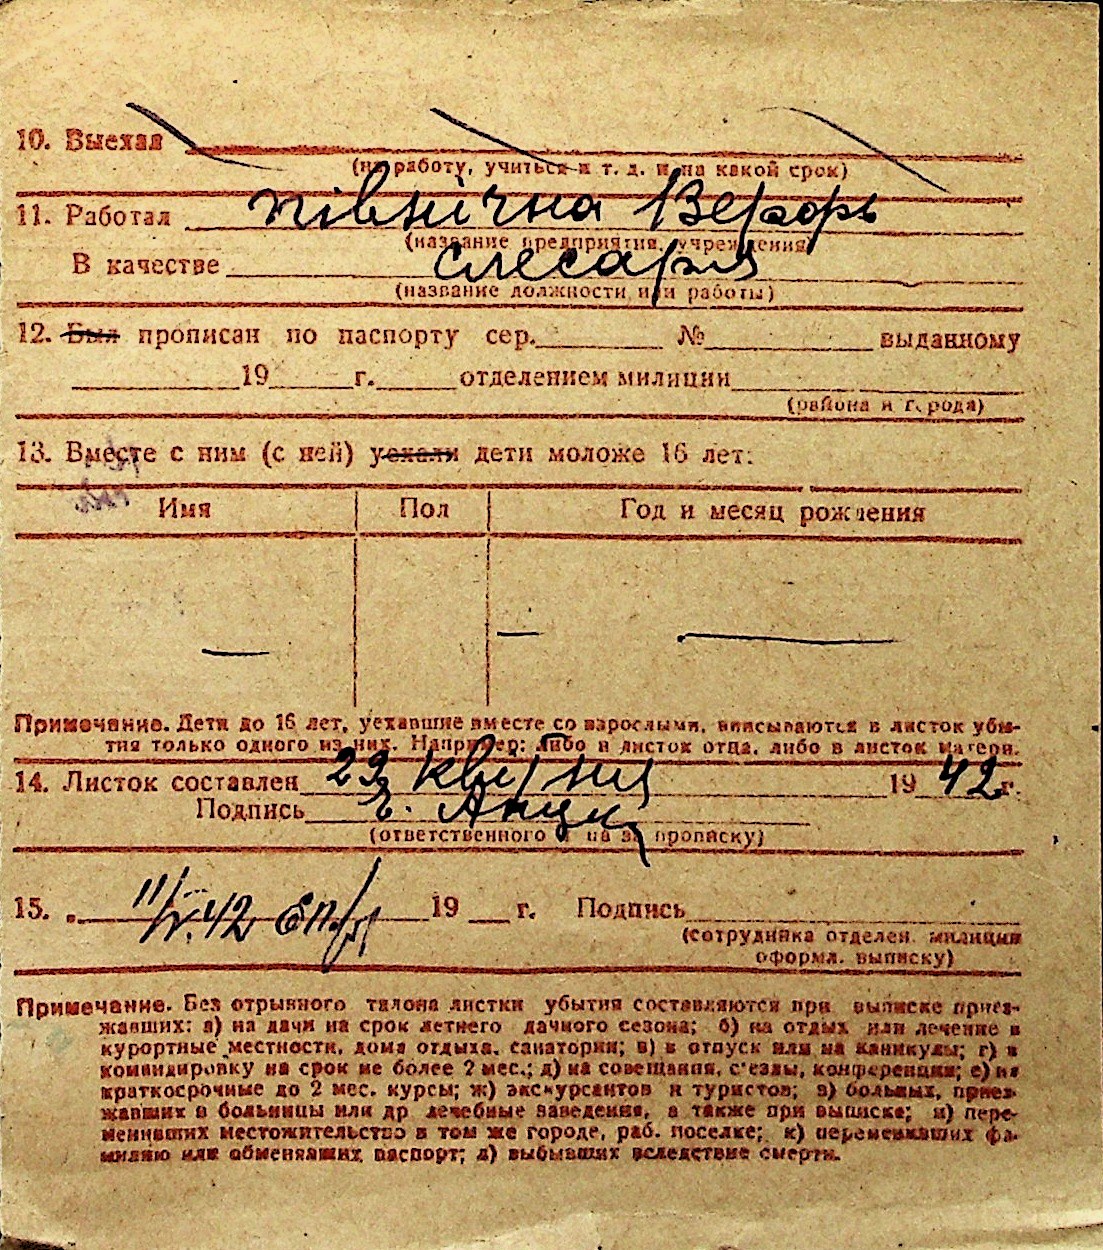 10. Выехал
(на работу, учиться и т. д. и на какой срок)
11. Работал північна Верфь
(название предприятия, учреждения)
В качестве слесаря
(название должности или работы)
12. Был прописан по паспорту сер. № выданному
19 г. отделением милиции
(района и города)
13. Вместе с ним (с ней) уехали дети моложе 16 лет:
Имя Пол Год и месяц рождения
Примечание. Дети до 16 лет, уехавшие вместе со взрослыми, вписываются в листок убы-
тия только одного из них. Например: либо в листок отца, либо в листок матери.
14. Листок составлен 29 квітня 1942 г.
Подпись
(ответственного лица за прописку)
15. 11/V.42 19 г. Подпись
(сотрудника отделен. милиции
оформл. выписку)
Примечание. Без отрывного талона листки убытия составляются при выписке приез-
жавших: а) на дачи на срок летнего дачного сезона; б) на отдых или лечение в
курортные местности, дома отдыха, санатории; в) в отпуск или на каникулы; г) в
командировку на срок не более 2 мес.; д) на совещания, с'езды, конференции; е) на
краткосрочные до 2 мес. курсы; ж) экскурсантов и туристов; з) больных, приез-
жавших в больницы или др лечебные заведения, а также при выписке; и) пере-
менивших местожительство в том же городе, раб. поселке; к) переменивших фа-
милию или обменявших паспорт; л) выбывших вследствие смерти.